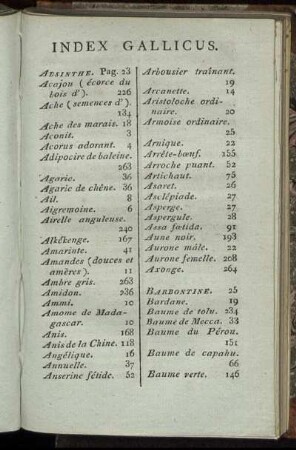 INDEX GALLICUS.
ABSINTHE. Pag. 23
Acajou (écorce du
bois d'). 226
Ache (semences d').
134
Ache des marais. 18
Aconit. 3
Acorus adorant. 4
Adipocire de baleine.
263
Agaric. 36
Agaric de chêne. 36
Ail. 8
Aigremoine. 6
Airelle anguleuse.
240
Alkékenge. 167
Amarinte. 41
Amandes (douces et
amères). 11
Ambre gris. 263
Amidon. 236
Ammi. 10
Amome de Mada-
gascar. 10
Anis. 168
Anis de la Chine. 118
Angélique. 16
Annuelle. 37
Anserine fétide. 52
Arbousier traînant.
19
Arcanette. 14
Aristoloche ordi-
naire. 20
Armoise ordinaire.
25
Arnique. 22
Arrête-bœuf. 155
Arroche puant. 52
Artichaut. 75
Asaret. 26
Asclépiade. 27
Asperge. 27
Aspergule. 28
Assa fœtida. 91
Aune noir. 193
Aurone mâle. 22
Aurone femelle. 208
Axonge. 264
BARBONTINE. 25
Bardane. 19
Baume de tolu. 234
Baume de Mecca. 33
Baume du Pérou.
151
Baume de capahu.
66
Baume verte. 146